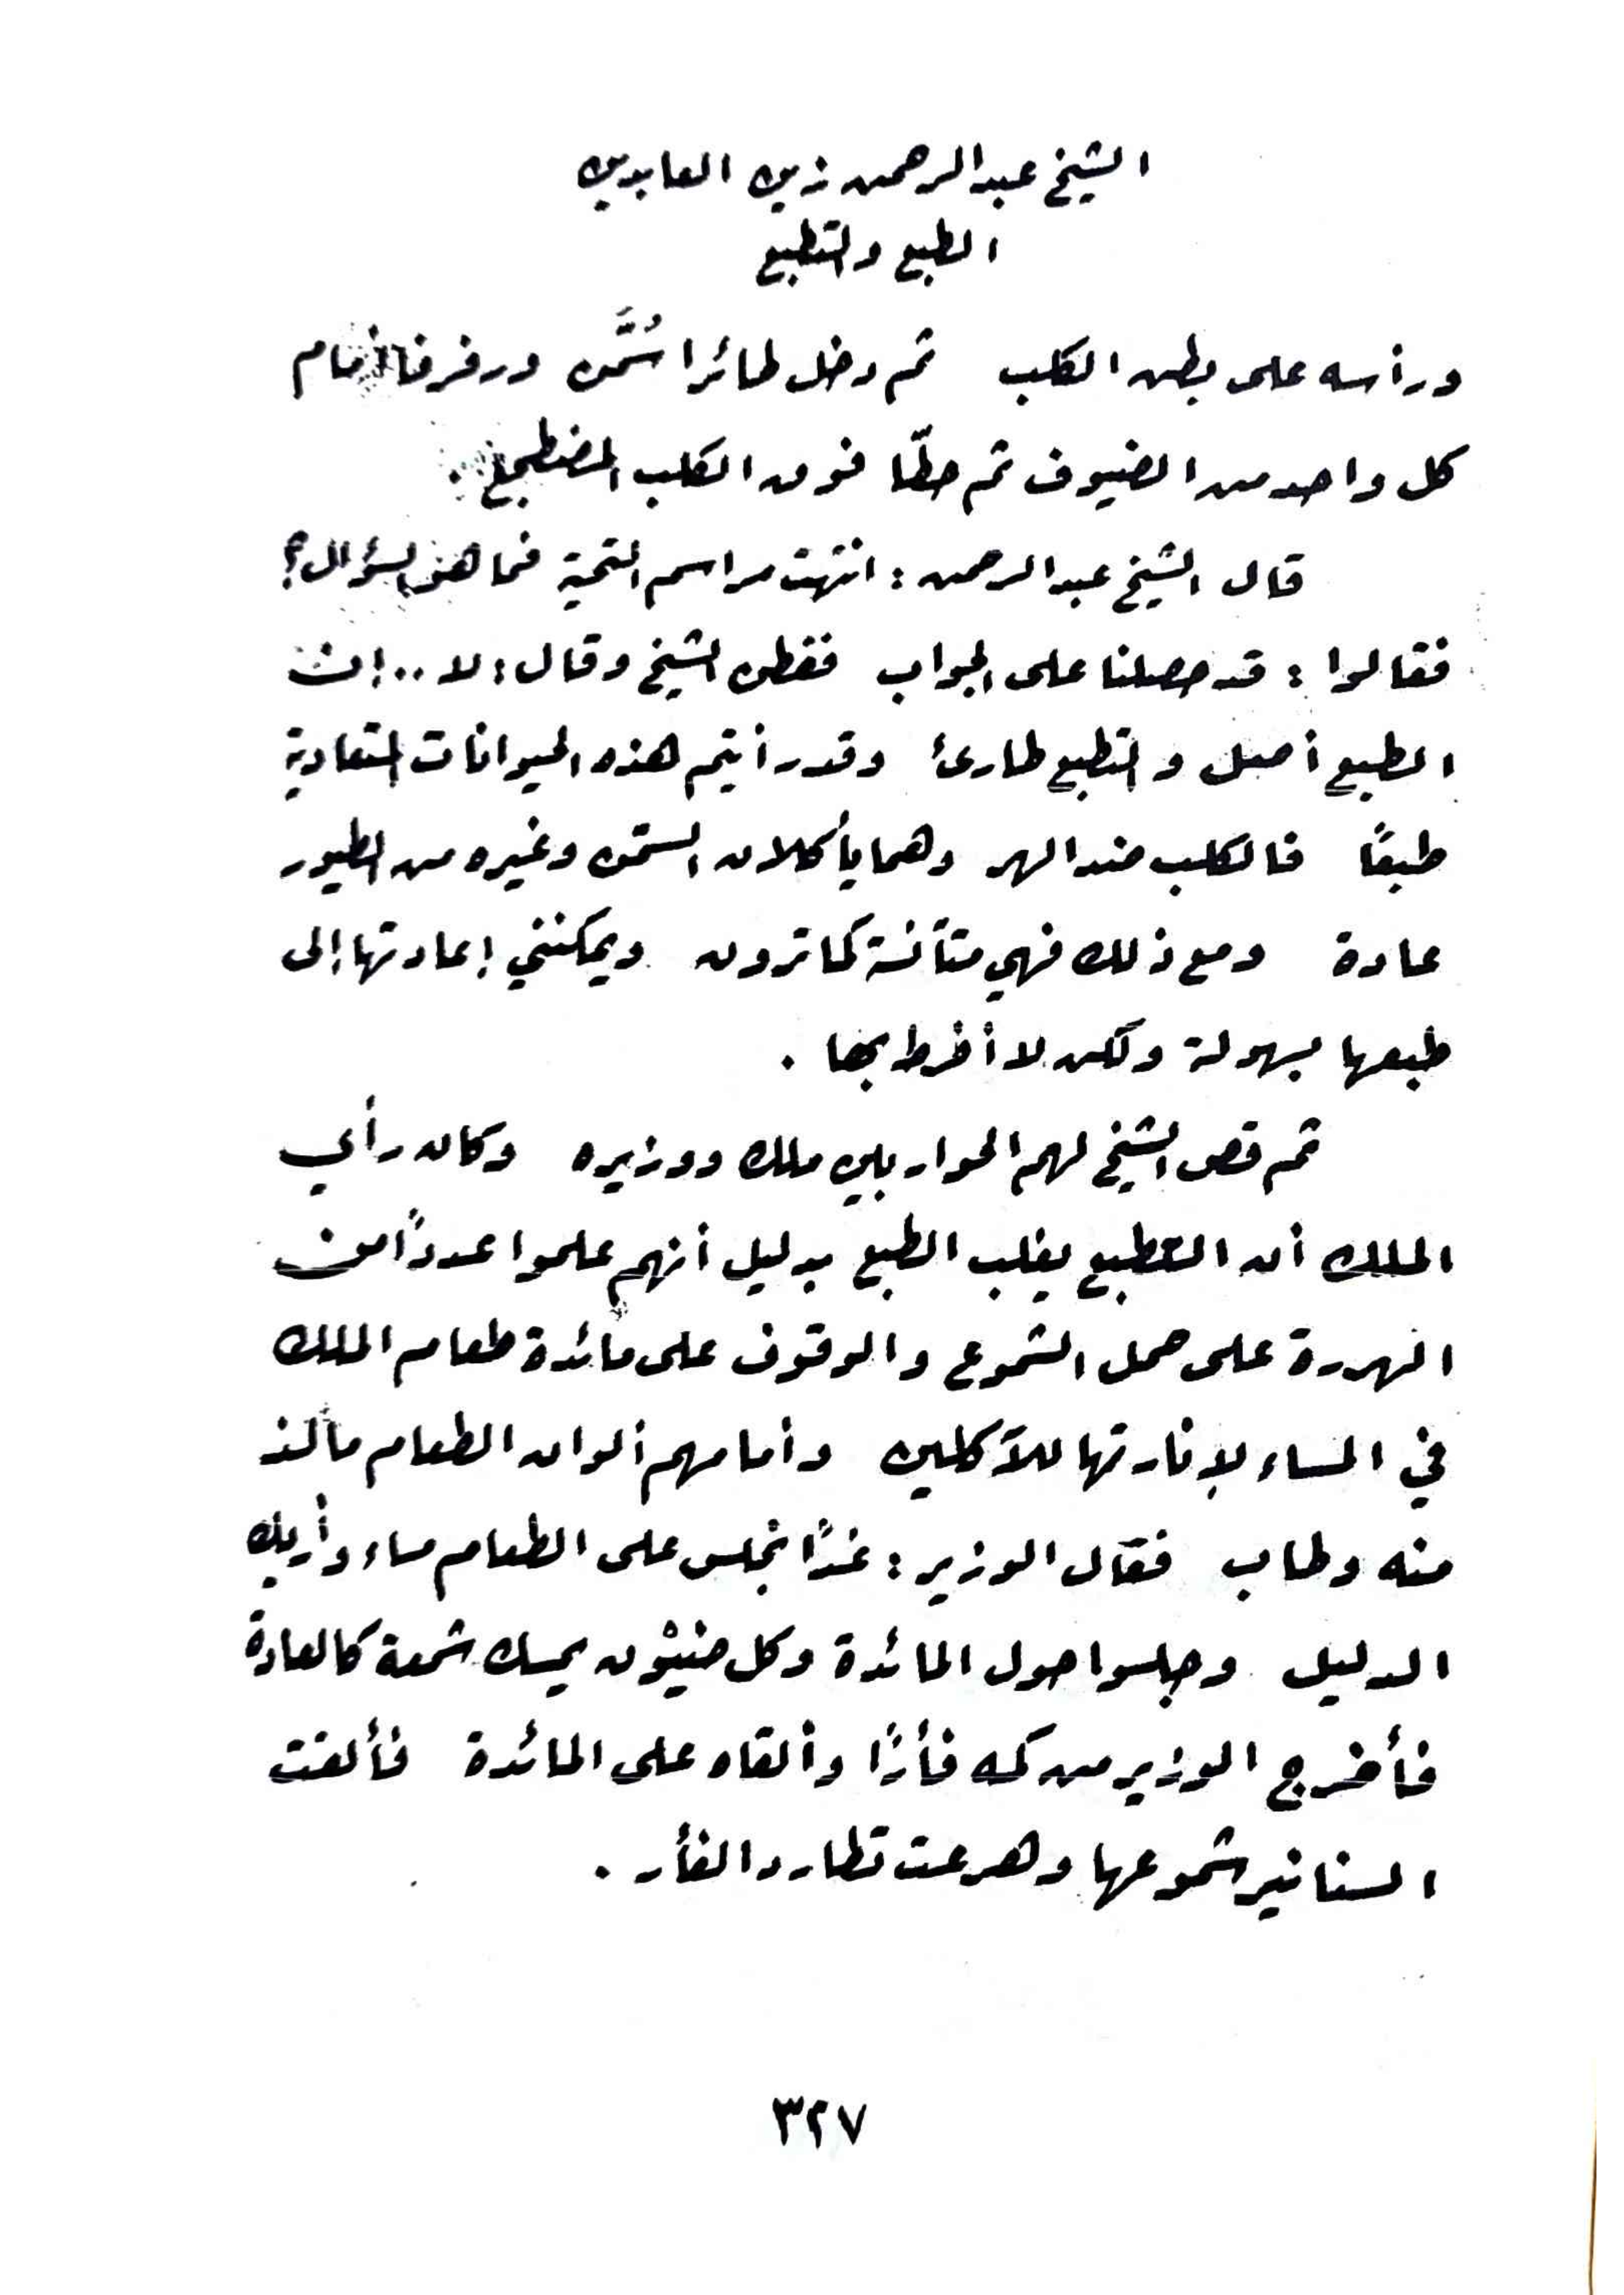 الشيخ عبدالرحمن زين العابدين
الطبع والتطبع
ورأسه على بطن الكلب ثم دخل طائرا سُمَّن ورفرفا أمام
كل واحد من الضيوف ثم حطّا فوق الكلب المضطجع.
قال الشيخ عبدالرحمن : انتهت مراسم التحية فما هو السؤال؟
فقالوا : قد حصلنا على الجواب ففطن الشيخ وقال : لا .. إن
الطبع أصيل والتطبع طارئ وقد رأيتم هذه الحيوانات المتعادية
طبعًا فالكلب ضد الهر وهما يأكلان السمّن وغيره من الطيور
عادة ومع ذلك فهي متآنسة كما ترون ويمكنني إعادتها إلى
طبعها بسهولة ولكن لا أفرط بها .
ثم قص الشيخ لهم الحوار بين ملك ووزيره وكان رأي
الملك أن التطبع يغلب الطبع بدليل أنهم علموا عددًا من
الهررة على حمل الشموع والوقوف على مائدة طعام الملك
في المساء لإنارتها للآكلين وأمامهم ألوان الطعام مالذ
منه وطاب فقال الوزير : غدًا نجلس على الطعام مساء وأريك
الدليل وجلسوا حول المائدة وكل ضَيْوَن يمسك شمعة كالعادة
فأخرج الوزير من كمه فأرًا وألقاه على المائدة فألقت
السنانير شموعها وهرعت تطارد الفأر .
٣٢٧